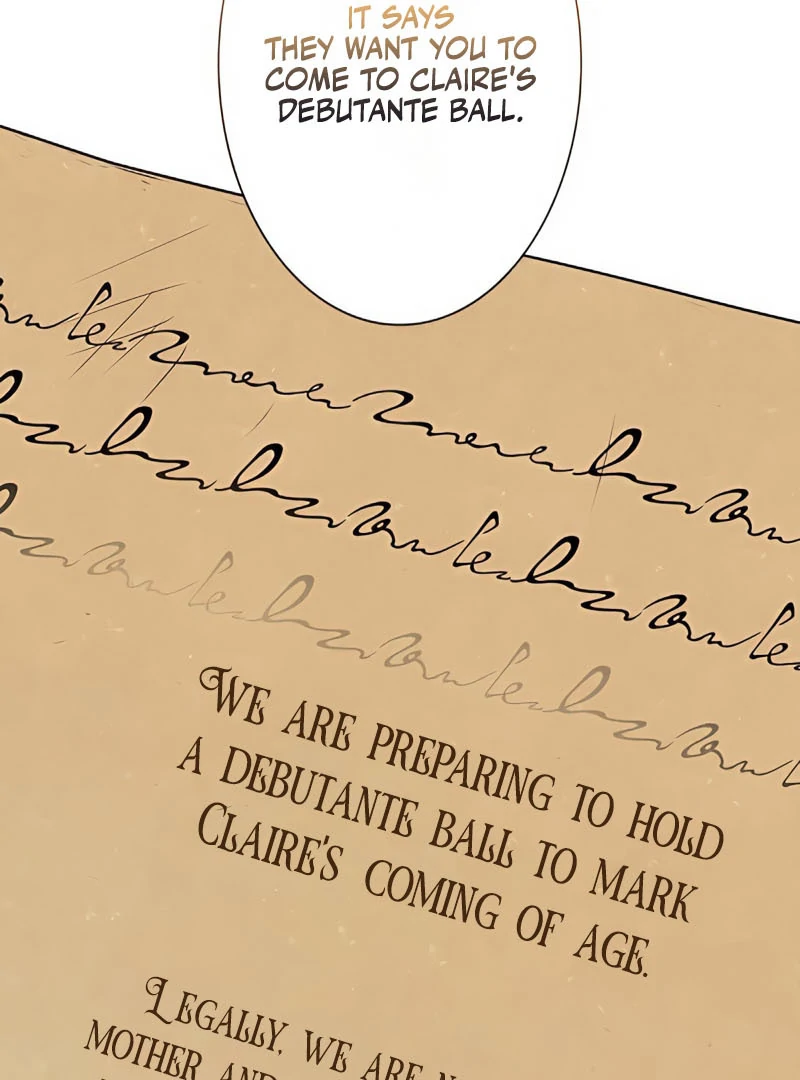 IT SAYS
THEY WANT YOU TO
COME TO CLAIRE'S
DEBUTANTE BALL.
WE ARE PREPARING TO HOLD
A DEBUTANTE BALL TO MARK
CLAIRE'S COMING OF AGE.
LEGALLY, WE ARE
MOTHER AND